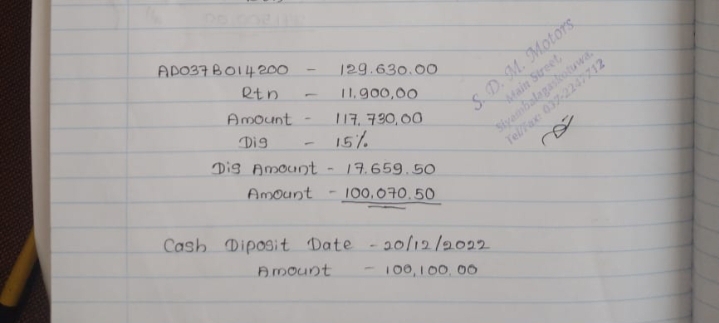 AD037B014200 - 129.630.00
Rtn - 11,900,00
Amount - 117,730,00
Dis - 15%
Dis Amount - 17.659.50
Amount - 100,070.50
S. D. M. Motors
Main Street,
Tel/Fax: 037-2247712
Cash Diposit Date - 20/12/2022
Amount - 100,100.00